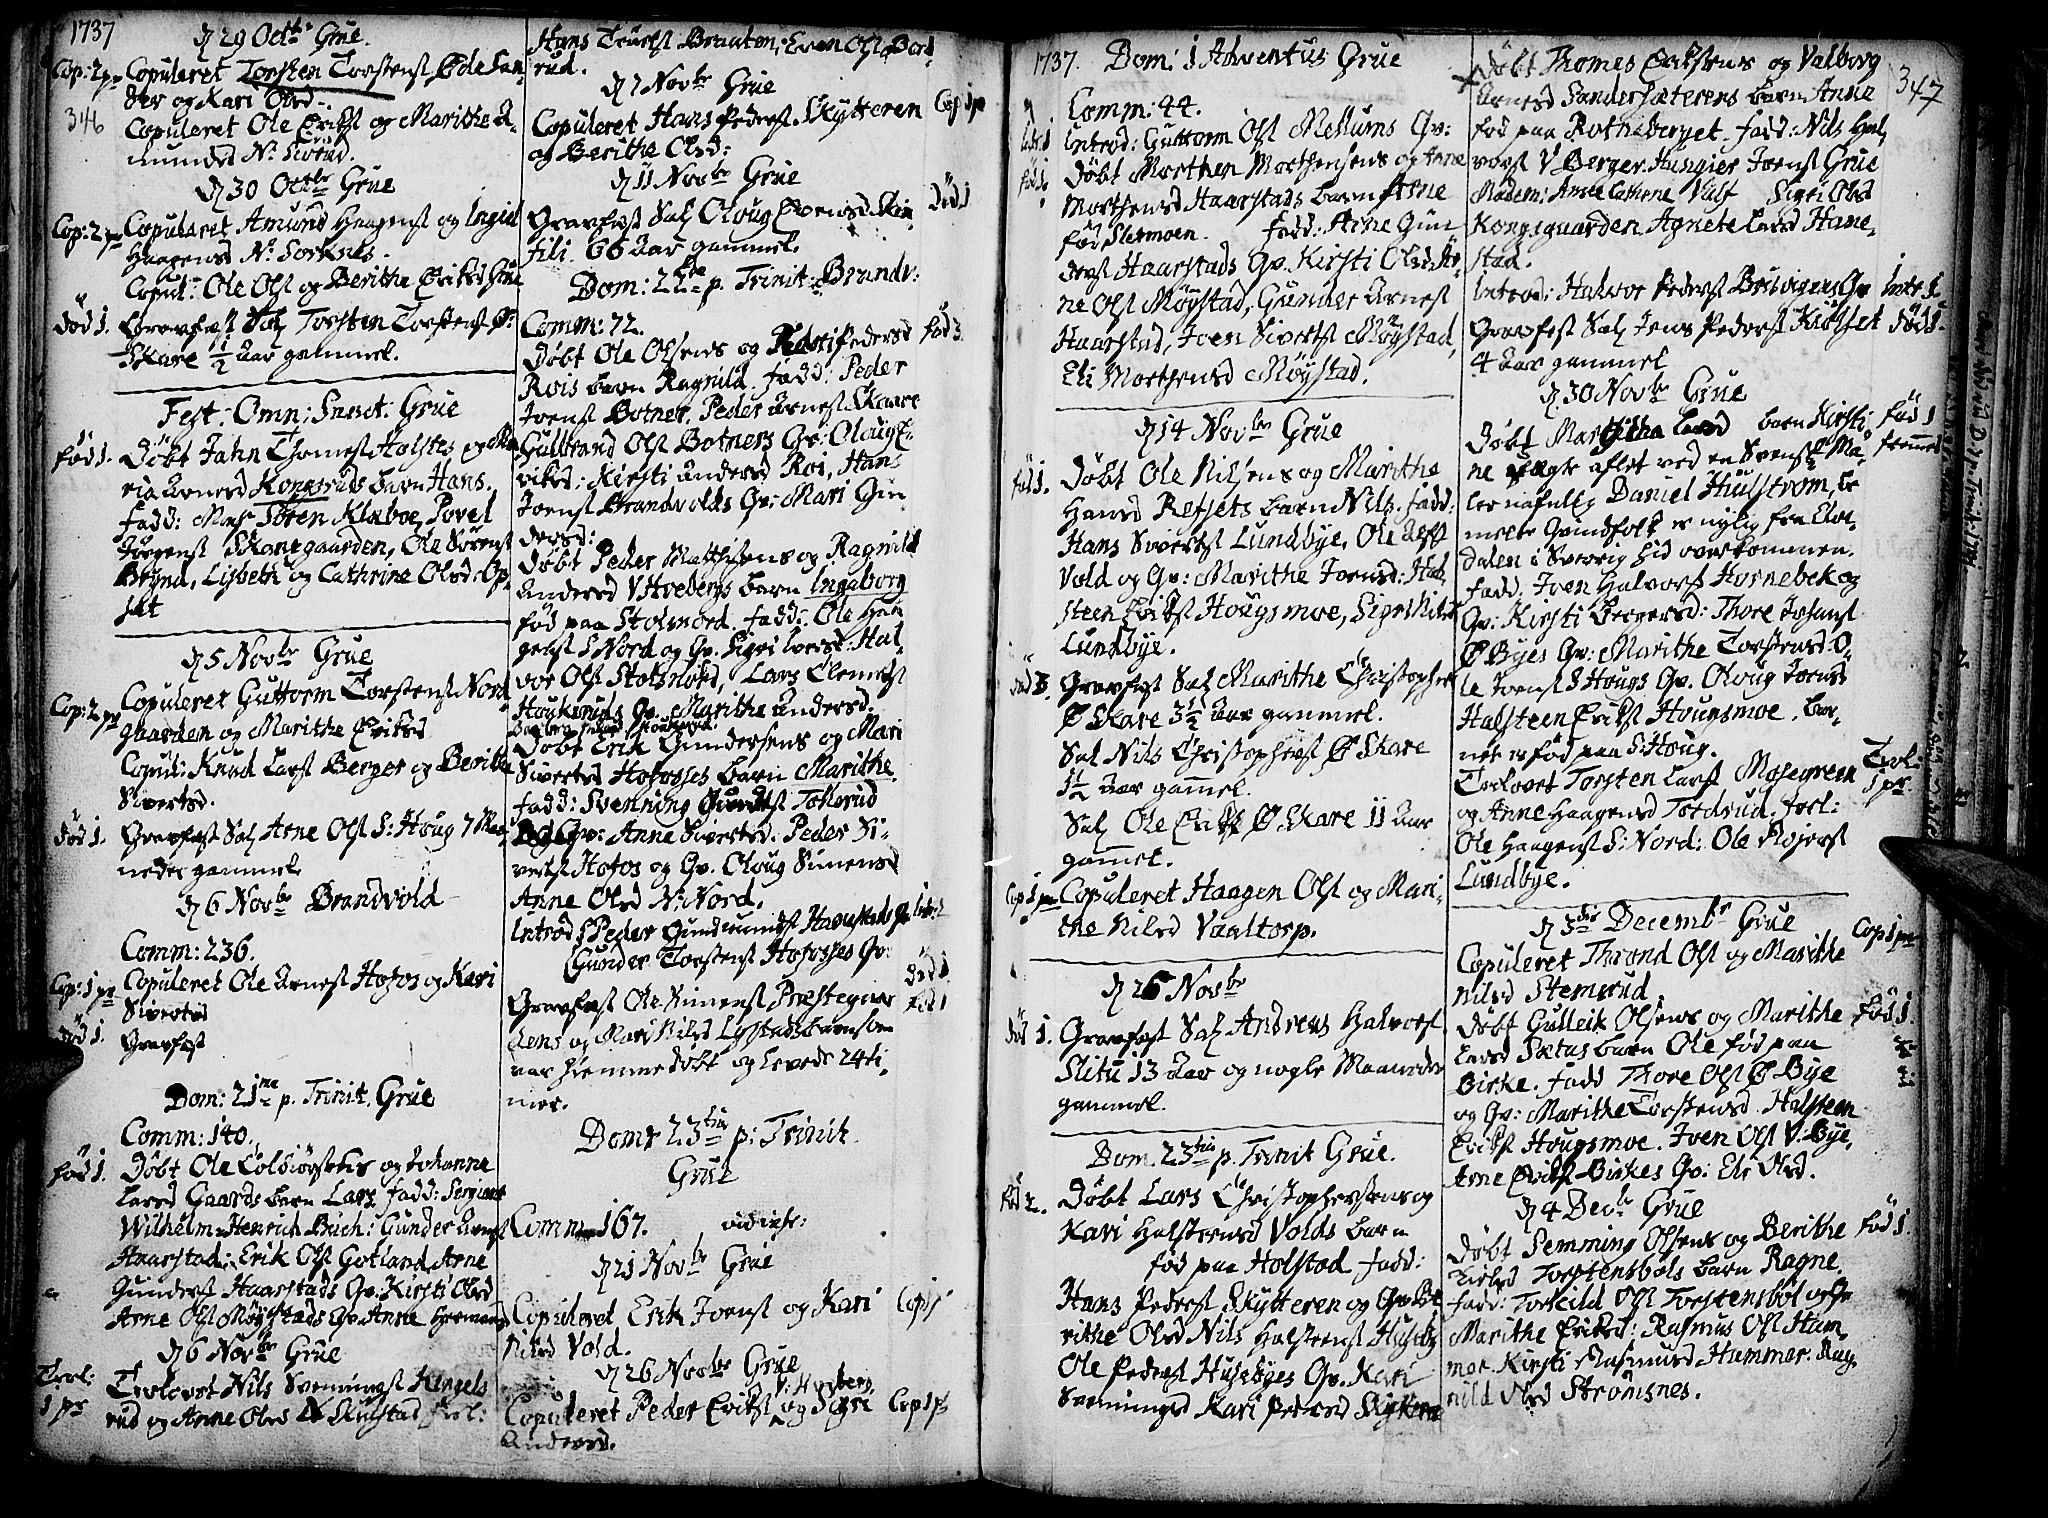 1737
d 29 Octbr Grue.
Cop: 2 pr Copuleret Torsten Torstensf Ødesan-
der og Kari Olsd-.
346
Copuleret Ole Eriksf og Marithe A-
mundsd N: Sirud.
d 30 Octbr Grue
Cop: 2 pr Copuleret Amund Haagensf og Ingid
Haagensd N: Sorknes.
Copul: Ole Olsf og Berithe Eriksd Grue
død 1. Gravfæst Sal Torsten Torstensf Ø:
Skare 1/2 aar gammel.
Fest: Omn: Sanct: Grue
fød 1. Døbt Jahn Thomesf Holstes og Ma-
ria Arnesd Kongsruds barn Hans.
fadd: Monsr Søren Klæboe, Povel
Jørgensf Skonegaarden, Ole Sørensf
Brynd, Lisbeth og Cathrine Olsd: Op-
set
d 5 Novbr Grue
Cop: 2 pr Copuleret Guttorm Torstensf Nord
gaarden og Marithe Eriksd
Copul: Knud Larsf Berger og Berithe
Sivertsd.
død 1. Gravfæst Sal Arne Olsf S: Houg 7 Maa-
neder gammel.
d 6 Novbr Brandvold
Comm: 236.
Cop: 1 pr Copuleret Ole Arnesf Hofos og Kari
Sivertsd
død 1. Gravfæst
Dom: 21ma p. Trinit. Grue
Comm: 140.
fød 1. Døbt Ole Colbiørsens og Johanne
Larsd Gaards barn Lars. fadd: Sergiant
Wilhelm Henrich Büch: Gunder Arnesf
Haarstad: Erik Olsf Gotland, Arne
Gundersf Haarstads Qv. Kirsti Olsd
Arne Olsf Møystads Qv. Anne Hermansd
d 6 Novbr Grue
Trol: 1 pr Trolovet Nils Svenningsf Kingels
rud og Anne Olsd Kulstad forl:
Hans Truelsf Brauten, Even Olsf Bord
rud.
d 7 Novbr Grue
Copuleret Hans Pedersf Skytteren Cop 1 pr
og Berithe Olsd:
d 11 Novbr Grue
Gravfæst Sal Oloug Evensd død 1
fili 66 aar gammel.
Dom: 22da p. Trinit: Brandv:
Comm: 72.
Døbt Ole Olsens og Kari Pedersd fød 3
Rois barn Ragnild. fadd: Peder
Joensf Botner, Peder Arnesf Skaare
Gulbrand Olsf Botners Qv: Oloug E-
riksd: Kirsti Andersd Roi, Hans
Joensf Brandvolds Qv: Mari Gun
dersd:
Døbt Peder Matthisens og Ragnild
Andersd V Hvebergs barn Ingeborg
fød paa Stolsnord. fadd: Ole Haa
gensf S Nord og Qv. Sigri Iversd: Hal-
vor Olsf Stolsnord, Lars Clemetsf
Houkeruds Qv. Marithe Andersd:
Døbt Erik Gundersens og Mari
Sivertsd Hofosses barn Marithe.
fadd: Svenning Gundersf Tokerud
og Qv: Anne Sivertsd. Peder Si-
vertsf Hofos og Qv. Oloug Simensd
Anne Olsd N: Nord.
Introd: Peder Gudmundsf Qv Intr: 2
Gunder Torstensf Hofosses Qv:
død 1
Gravfæst Ole Simensf Præstegaar fød 1
dens og Mari Nilsd barn som
var hiemme døbt og levede 24 ti-
mer.
Dom: 23tia p: Trinit.
Grue
Comm 167.
d 21 Novbr Grue
Copuleret Erik Joensf og Kari Cop 1 pr
Nilsd Vold.
d 26 Novbr Grue
V: Hveberg.
Copuleret Peder Eriksf og Sigri Cop 1 pr
Andersd.
1737. Dom: 1 Adventus Grue
Comm: 44.
Introd: Guttorm Olsf Mellums Qv:
Døbt Morthen Morthensens og Anne
Morthensd Haarstads barn Arne
fød Sletmoen. fadd: Arne Gun
dersf Haarstads Qv. Kirsti Olsd Ar-
ne Olsf Møystad, Gunder Arnesf
Haarstad, Joen Sivertsf Møystad,
Eli Morthensd Møystad.
d 14 Novbr Grue
fød 1. Døbt Ole Nilsens og Marithe
Hansd Refsets barn Nils. fadd:
Hans Sivertsf Lundbye, Ole Olsf
Vold og Qv: Marithe Joensd: Hal
steen Eriksf Hougsmoe, Sigri Nilsd
Lundbye.
død 3. Gravfæst Sal Marithe Christophersd
Ø Skare 3 1/2 aar gammel.
Sal Nils Christophersf Ø Skare
1 1/2 aar gammel.
Sal Ole Eriksf Ø. Skare 11 aar
gammel.
Cop 1 pr Copuleret Haagen Olsf og Mari-
the Nilsd Vaaltorp.
d 26 Novbr
død 1. Gravfæst Sal Andreas Halvorsf
Slitu 13 aar og nogle Maaneder
gammel.
Dom. 23tia p. Trinit Grue.
fød 2. Døbt Lars Christophersens og
Kari Halsteensd Volds barn
fød paa Holstad fadd:
Hans Pedersf Skytteren og Qv. Be
rithe Olsd Nils Halsteensf Huseby
Ole Pedersf Husebyes Qv. Kari
Svenningsd Kari Pedersd Skytteren
347
Døbt Thomes Eriksens og Valborg
Arnesd Sandersæterens barn Anne
fød paa Rotneberget. fadd: Nils Hal,
vorsf V Berger, Joensf Grue
Madem: Anne Cathrine Sigri Olsd
Kongsgaarden Agnete Larsd Hane-
stad.
Introd: Halvor Pedersf Qv Intr 1.
Gravfæst Sal Jens Pedersf Kiølset død 1.
4 aar gammel
d 30 Novbr Grue
Døbt Marthe Larsd barn Kirsti fød 1
ne ægte aflet ved en Svensk Ma-
ler nafnlig Daniel Hulstrøm, be
meldte Qvindfolk er nylig fra Elv-
dalen i Sverrig hid overkommen.
fadd. Joen Halvorsf Hornebek og
Qv: Kirsti Bergersd: Thore Johansf
Ø Byes Qv: Marithe Torstensd: O-
le Joensf S Hougs Qv. Oloug Joensd
Halsteen Eriksf Hougsmoe, bar-
net er fød paa S Houg.
Trolovet Torsten Larsf Mosegreen Trol: 1 pr.
og Anne Haagensd Tordrud. forl:
Ole Haagensf S: Nord: Ole Rojersf
Lundbye.
d 3die Decembr Grue
Copuleret Thrond Olsf og Marithe Cop 1 pr
Nilsd Stemsrud
Døbt Gulleik Olsens og Marithe fød 1.
Larsd Sætus barn Ole fød paa
Birke. fadd Thore Olsf Ø Bye
og Qv: Marithe Torstensd. Halsteen
Eriksf Hougsmoe. Joen Olsf V. Bye,
Arne Eriksf Birkes Qv: Eli Olsd.
d 4 Decbr Grue
Døbt Semming Olsens og Berithe fød 1.
Nilsd Torstensbøls barn Ragne.
fadd: Torkild Olsf Torstensbøl og Qv
Marithe Eriksd: Rasmus Olsf Ham,
mer. Kirsti Rasmusd Hammer. Rag
nild Olsd Strømsnes.